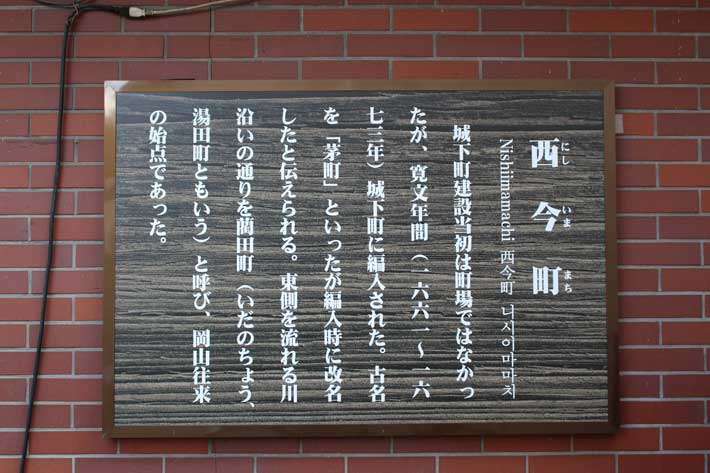 西今町
にし いま まち
Nishiimamachi 西今町 니시이마마치
城下町建設当初は町場ではなかっ
たが、寛文年間（一六六一〜一六
七三年）城下町に編入された。古名
を「茅町」といったが編入時に改名
したと伝えられる。東側を流れる川
沿いの通りを藺田町（いだのちょう、
湯田町ともいう）と呼び、岡山往来
の始点であった。